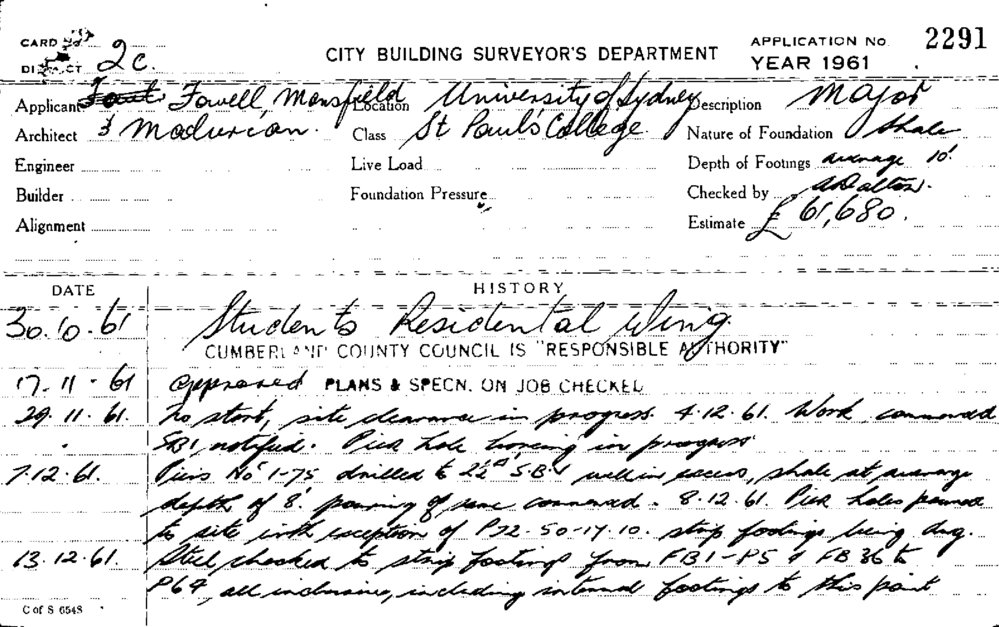 CARD No.
DISTRICT 2C.
CITY BUILDING SURVEYOR'S DEPARTMENT
APPLICATION No. 2291
YEAR 1961
Applicant Fowell, Mansfield
Location University of Sydney
Description Major
Architect & Maclurcan.
Class St Paul's College.
Nature of Foundation Shale
Engineer
Live Load
Depth of Footings average 10'.
Builder
Foundation Pressure
Checked by Dalton.
Alignment
Estimate £ 61,680.
DATE
HISTORY
30.10.61 Students Residental Wing.
CUMBERLAND COUNTY COUNCIL IS "RESPONSIBLE AUTHORITY"
17.11.61 Approved PLANS & SPECN. ON JOB CHECKED
29.11.61. No start, site clearance in progress. 4.12.61. Work commenced
notified. Pier hole boring in progress
7.12.61. Piers Nos 1-75 drilled to well in excess, shale at average
depth of 8'. pouring of same commenced. 8.12.61. Pier holes poured
to site with exception of P32-50-17.10. strip footings being dug.
13.12.61. Steel checked to strip footings from FB1-P5 & FB36 to
P64, all inclusive, including internal footings to this point
C of S 6548